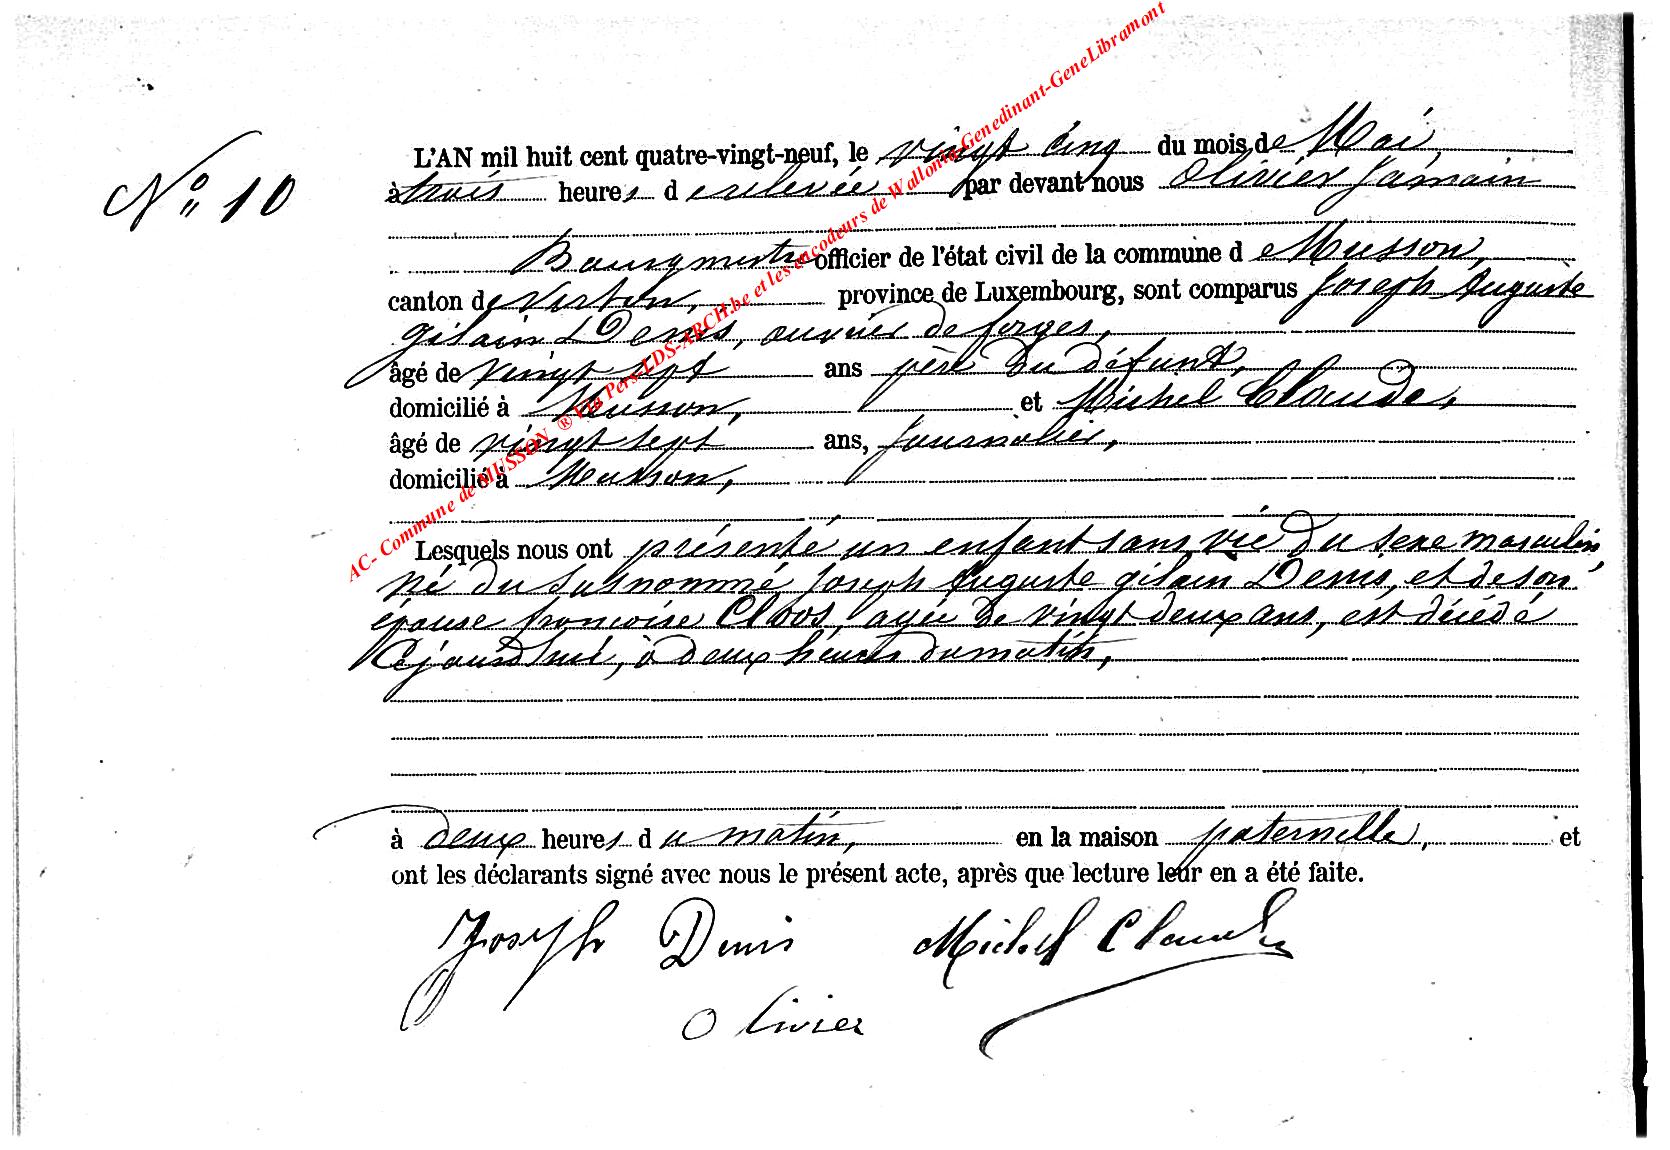 N° 10
L'AN mil huit cent quatre-vingt-neuf, le vingt cinq du mois de Mai,
à trois heures de relevée par devant nous Olivier Jamain
Bourgmestre officier de l'état civil de la commune de Musson,
canton de Virton, province de Luxembourg, sont comparus Joseph Auguste
gilain Denis, ouvrier de forges,
âgé de vingt sept ans père du défunt,
domicilié à Musson, et Michel Claude,
âgé de vingt sept ans, journalier,
domicilié à Musson,
Lesquels nous ont présenté un enfant sans vie du sexe masculin,
né du susnommé Joseph Auguste gilain Denis, et de son
épouse françoise Cloos, agée de vingt deux ans, est décédé
Cejourd'hui, à deux heures du matin,
à deux heures du matin, en la maison paternelle, et
ont les déclarants signé avec nous le présent acte, après que lecture leur en a été faite.
Joseph Denis Michel Claude
Olivier
AC- Commune de MUSSON ® Via Pers-LDS-ARCH.be et les encodeurs de Wallonie-Genedinant-GeneLibramont